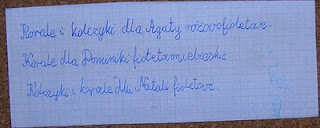 Korale i kolczyki dla Agaty różowofioletowe.
Korale dla Dominiki fioletowoniebieskie
Kolczyki i korale dla Natali fioletowe.